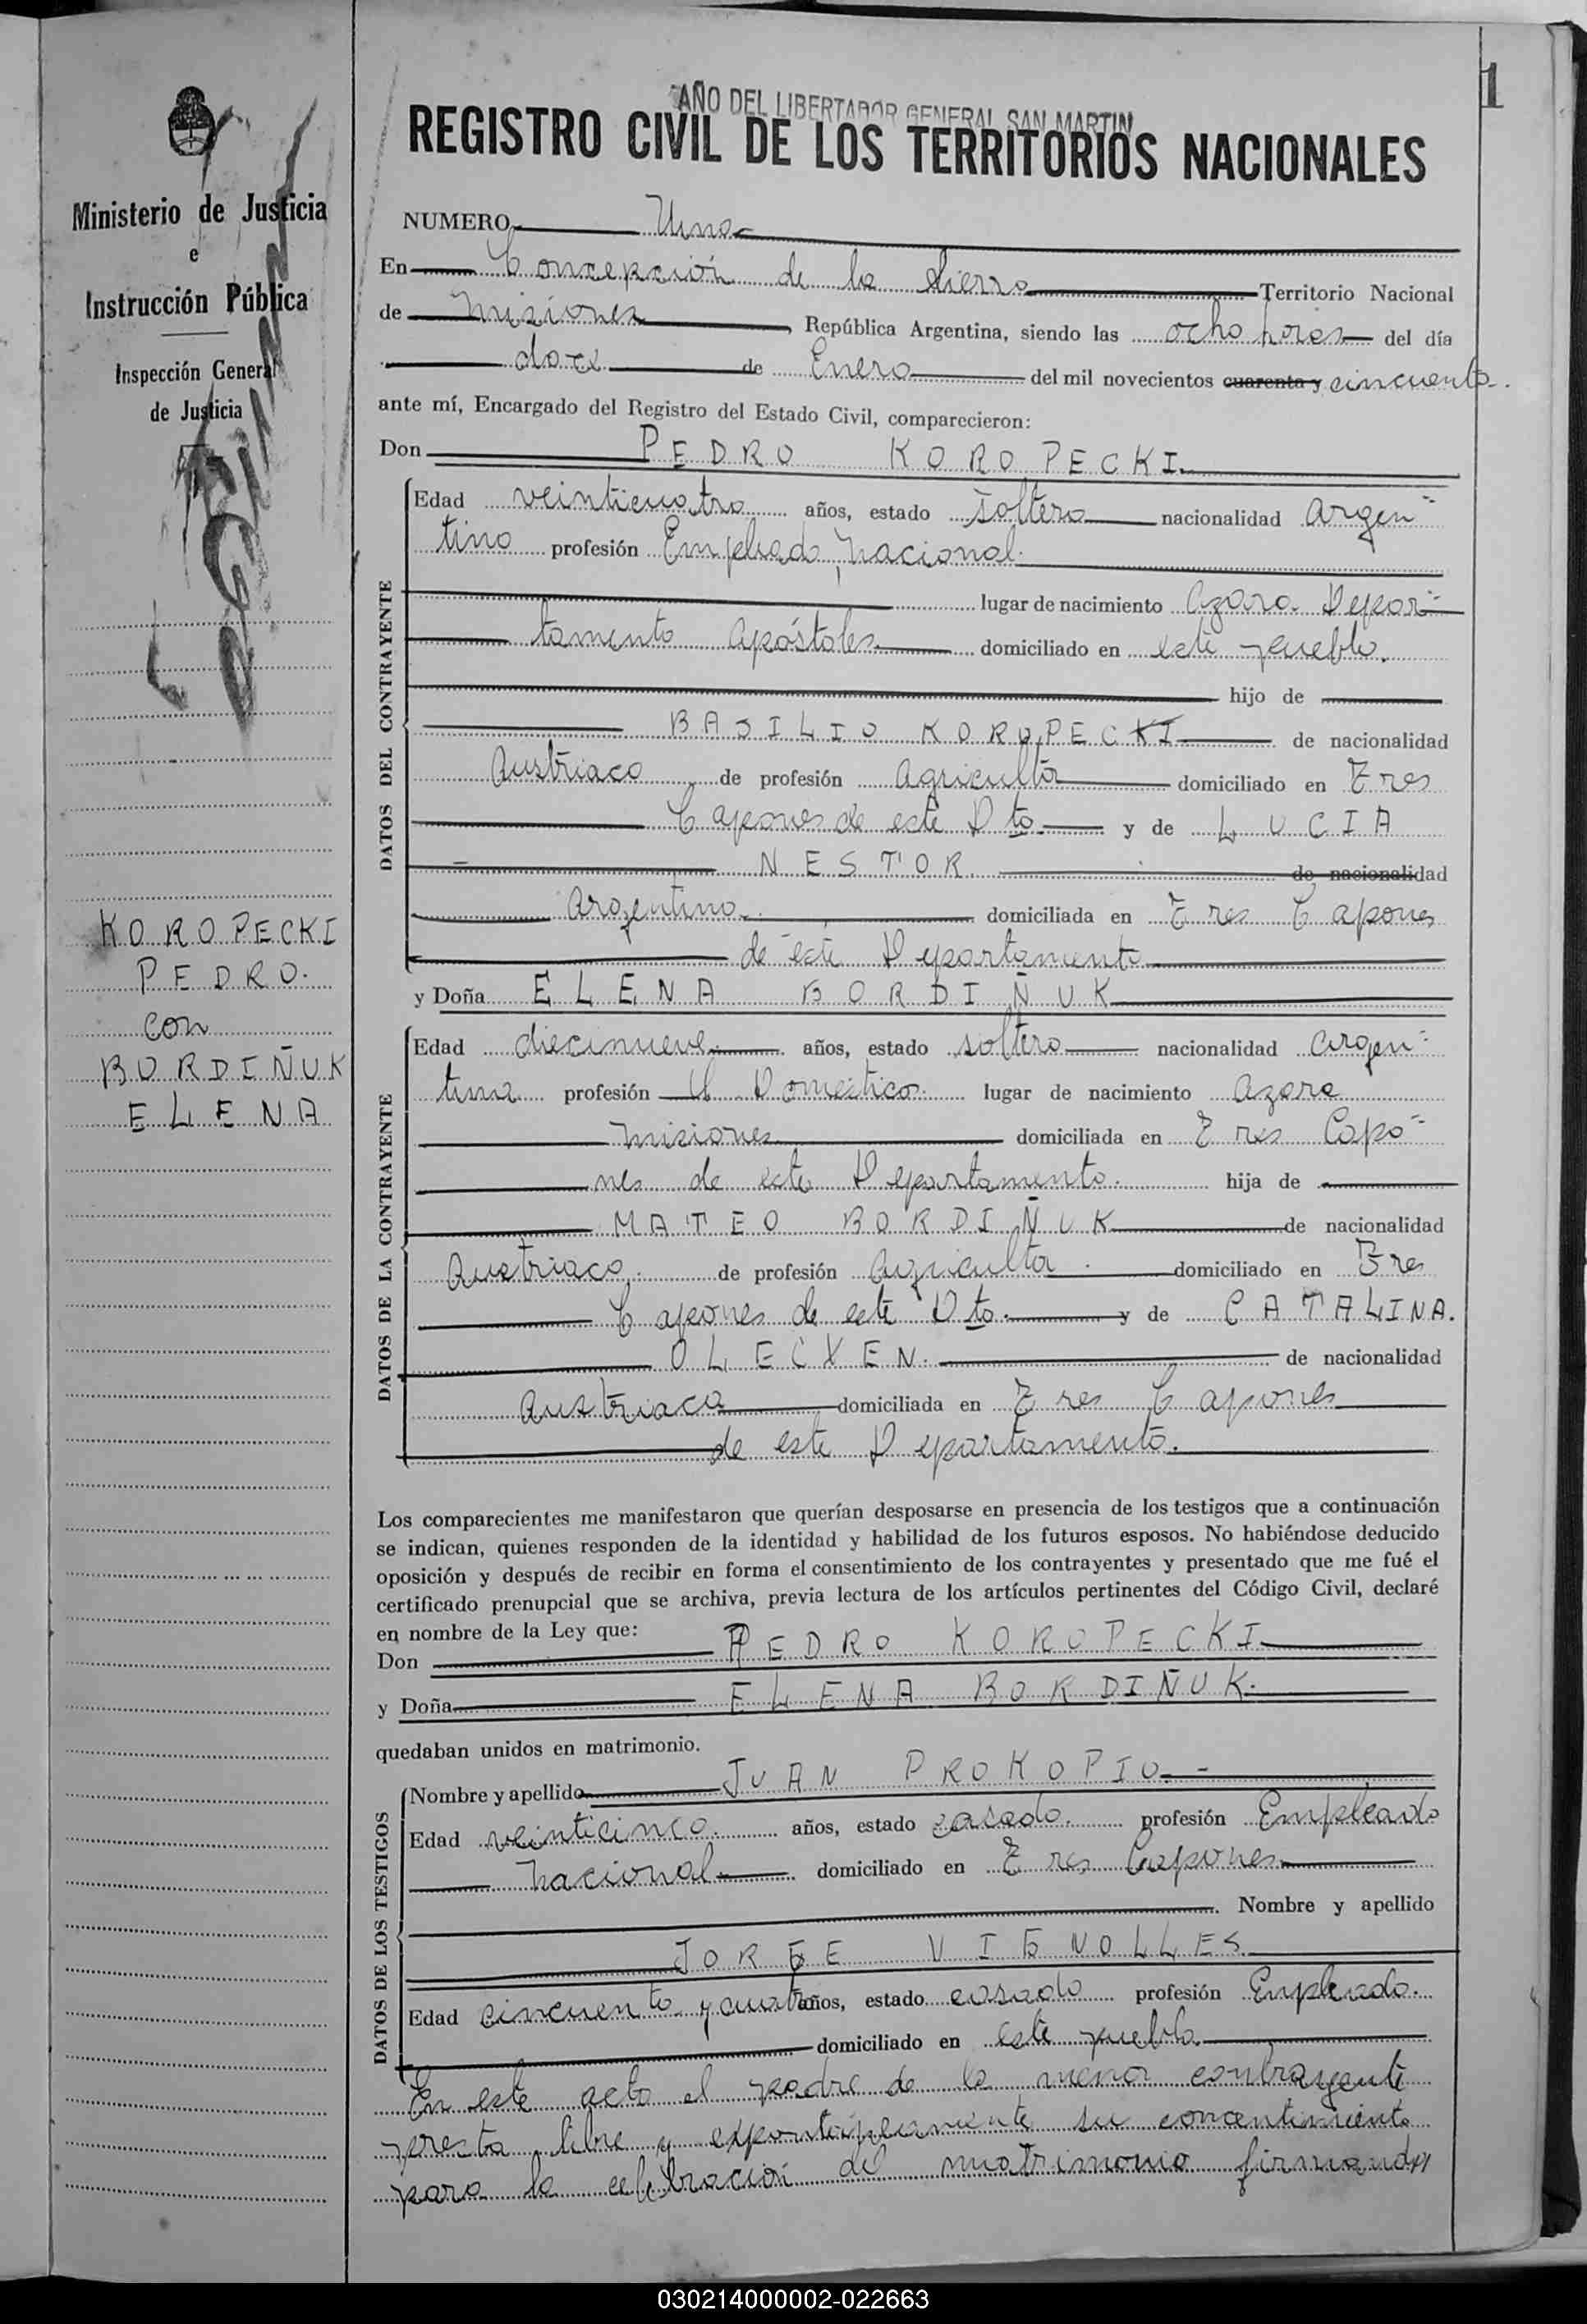 1
AÑO DEL LIBERTADOR GENERAL SAN MARTIN
REGISTRO CIVIL DE LOS TERRITORIOS NACIONALES
Ministerio de Justicia
e
Instrucción Pública
Inspección General
de Justicia
KOROPECKI
PEDRO.
con
BORDIÑUK
ELENA
NUMERO Uno
En Concepción de la Sierra Territorio Nacional
de Misiones, República Argentina, siendo las ocho horas del día
doce de Enero del mil novecientos cuarenta y cincuenta.
ante mí, Encargado del Registro del Estado Civil, comparecieron:
Don PEDRO KOROPECKI.
DATOS DEL CONTRAYENTE
Edad veinticuatro años, estado soltero nacionalidad Argen=
tino profesión Empleado nacional.
lugar de nacimiento Azara. Depar=
tamento Apóstoles. domiciliado en este pueblo.
hijo de
BASILIO KOROPECKI de nacionalidad
Austriaco de profesión Agricultor domiciliado en Tres
Capones de este Dto. y de LUCIA
NESTOR de nacionalidad
Argentina. domiciliada en Tres Capones
de este Departamento
y Doña ELENA BORDIÑUK
DATOS DE LA CONTRAYENTE
Edad diecinueve. años, estado soltera nacionalidad Argen=
tina profesión Q. Domésticos. lugar de nacimiento Azara
Misiones domiciliada en Tres Capo=
nes de este Departamento. hija de
MATEO BORDIÑUK de nacionalidad
Austriaco. de profesión Agricultor. domiciliado en Tres
Capones de este Dto. y de CATALINA.
OLECXEN. de nacionalidad
Austriaca domiciliada en Tres Capones
de este Departamento.
Los comparecientes me manifestaron que querían desposarse en presencia de los testigos que a continuación
se indican, quienes responden de la identidad y habilidad de los futuros esposos. No habiéndose deducido
oposición y después de recibir en forma el consentimiento de los contrayentes y presentado que me fué el
certificado prenupcial que se archiva, previa lectura de los artículos pertinentes del Código Civil, declaré
en nombre de la Ley que:
Don PEDRO KOROPECKI
y Doña ELENA BORDIÑUK.
quedaban unidos en matrimonio.
DATOS DE LOS TESTIGOS
Nombre y apellido JUAN PROKOPIO.
Edad veinticinco. años, estado casado. profesión Empleado
nacional. domiciliado en Tres Capones.
Nombre y apellido
JORGE VIGNOLLES.
Edad cincuenta y cuatro años, estado casado profesión Empleado.
domiciliado en este pueblo.
En este acto el padre de la menor contrayente
presta libre y expontáneamente su concentimiento
para la celebración del matrimonio firmando
030214000002-022663